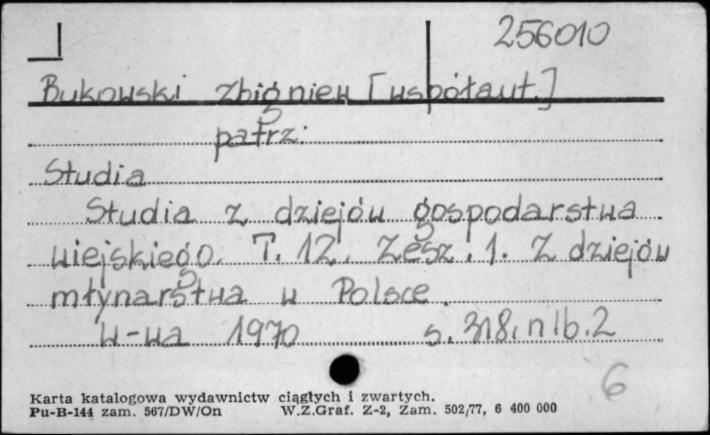 256010
Bukowski Zbigniew [współaut.]
patrz:
Studia
Studia z dziejów gospodarstwa
wiejskiego. T. 12. Zesz. 1. Z dziejów
młynarstwa w Polsce.
W-wa 1970 s. 318, nlb. 2
6
Karta katalogowa wydawnictw ciągłych i zwartych.
Pu-B-144 zam. 567/DW/On W.Z.Graf. Z-2, Zam. 502/77, 6 400 000